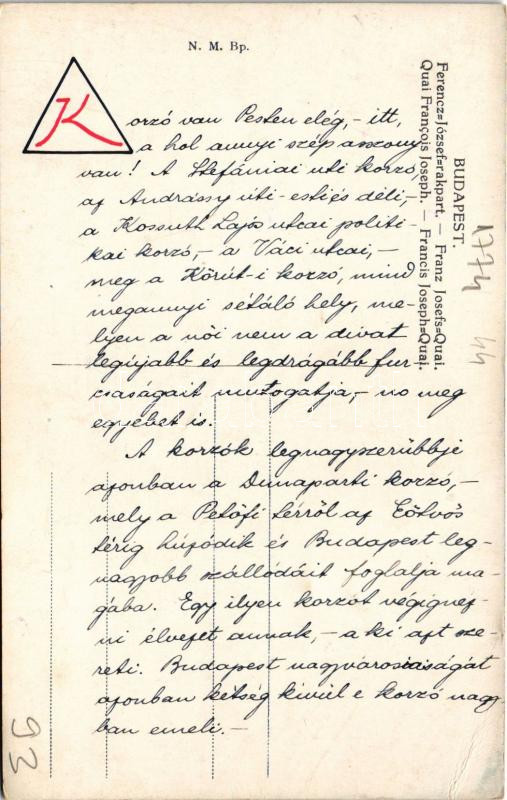 N. M. Bp.
BUDAPEST.
Ferencz=József=rakpart. — Franz Josefs=Quai.
Quai François Joseph. — Francis Joseph=Quai.
1774
44
Korzó van Pesten elég, - itt,
a hol annyi szép asszony
van! A Stefániai uti korzó,
az Andrássy úti - esti és déli, -
a Kossuth Lajos utcai politi-
kai korzó, - a Váci utcai, -
meg a Körút-i korzó, mind
megannyi sétáló hely, me-
lyen a női nem a divat
legújabb és legdrágább fur-
csaságait mutogatja, - no meg
egyebet is.
A korzók legnagyszerűbbje
azonban a Dunaparti korzó, -
mely a Petőfi térről az Eötvös
térig húzódik és Budapest leg-
nagyobb szállódáit foglalja ma-
gába. Egy ilyen korzót végignéz-
ni élvezet annak, - a ki azt sze-
reti. Budapest nagyvárosiasságát
azonban kétség kívül e korzó nagy-
ban emeli. -
93